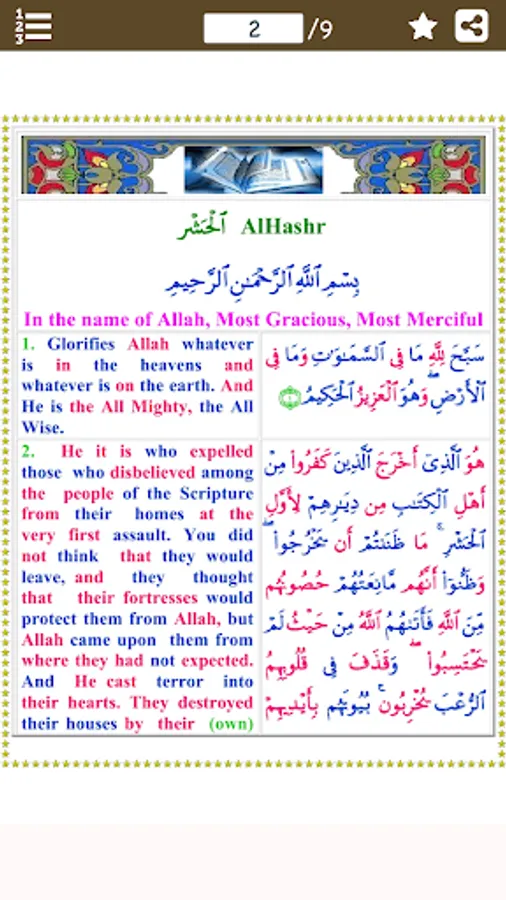 1
2
3
2
/9
ٱلْحَشْر AlHashr
بِسْمِ ٱللَّهِ ٱلرَّحْمَـٰنِ ٱلرَّحِيمِ
In the name of Allah, Most Gracious, Most Merciful
1. Glorifies Allah whatever
is in the heavens and
whatever is on the earth. And
He is the All Mighty, the All
Wise.
سَبَّحَ لِلَّهِ مَا فِى ٱلسَّمَـٰوَٰتِ وَمَا فِى
ٱلْأَرْضِ ۖ وَهُوَ ٱلْعَزِيزُ ٱلْحَكِيمُ ١
2. He it is who expelled
those who disbelieved among
the people of the Scripture
from their homes at the
very first assault. You did
not think that they would
leave, and they thought
that their fortresses would
protect them from Allah, but
Allah came upon them from
where they had not expected.
And He cast terror into
their hearts. They destroyed
their houses by their (own)
هُوَ ٱلَّذِىٓ أَخْرَجَ ٱلَّذِينَ كَفَرُوا۟ مِنْ
أَهْلِ ٱلْكِتَـٰبِ مِن دِيَـٰرِهِمْ لِأَوَّلِ
ٱلْحَشْرِ ۚ مَا ظَنَنتُمْ أَن يَخْرُجُوا۟ ۖ
وَظَنُّوٓا۟ أَنَّهُم مَّانِعَتُهُمْ حُصُونُهُم
مِّنَ ٱللَّهِ فَأَتَىٰهُمُ ٱللَّهُ مِنْ حَيْثُ لَمْ
يَحْتَسِبُوا۟ ۖ وَقَذَفَ فِى قُلُوبِهِمُ
ٱلرُّعْبَ ۚ يُخْرِبُونَ بُيُوتَهُم بِأَيْدِيهِمْ